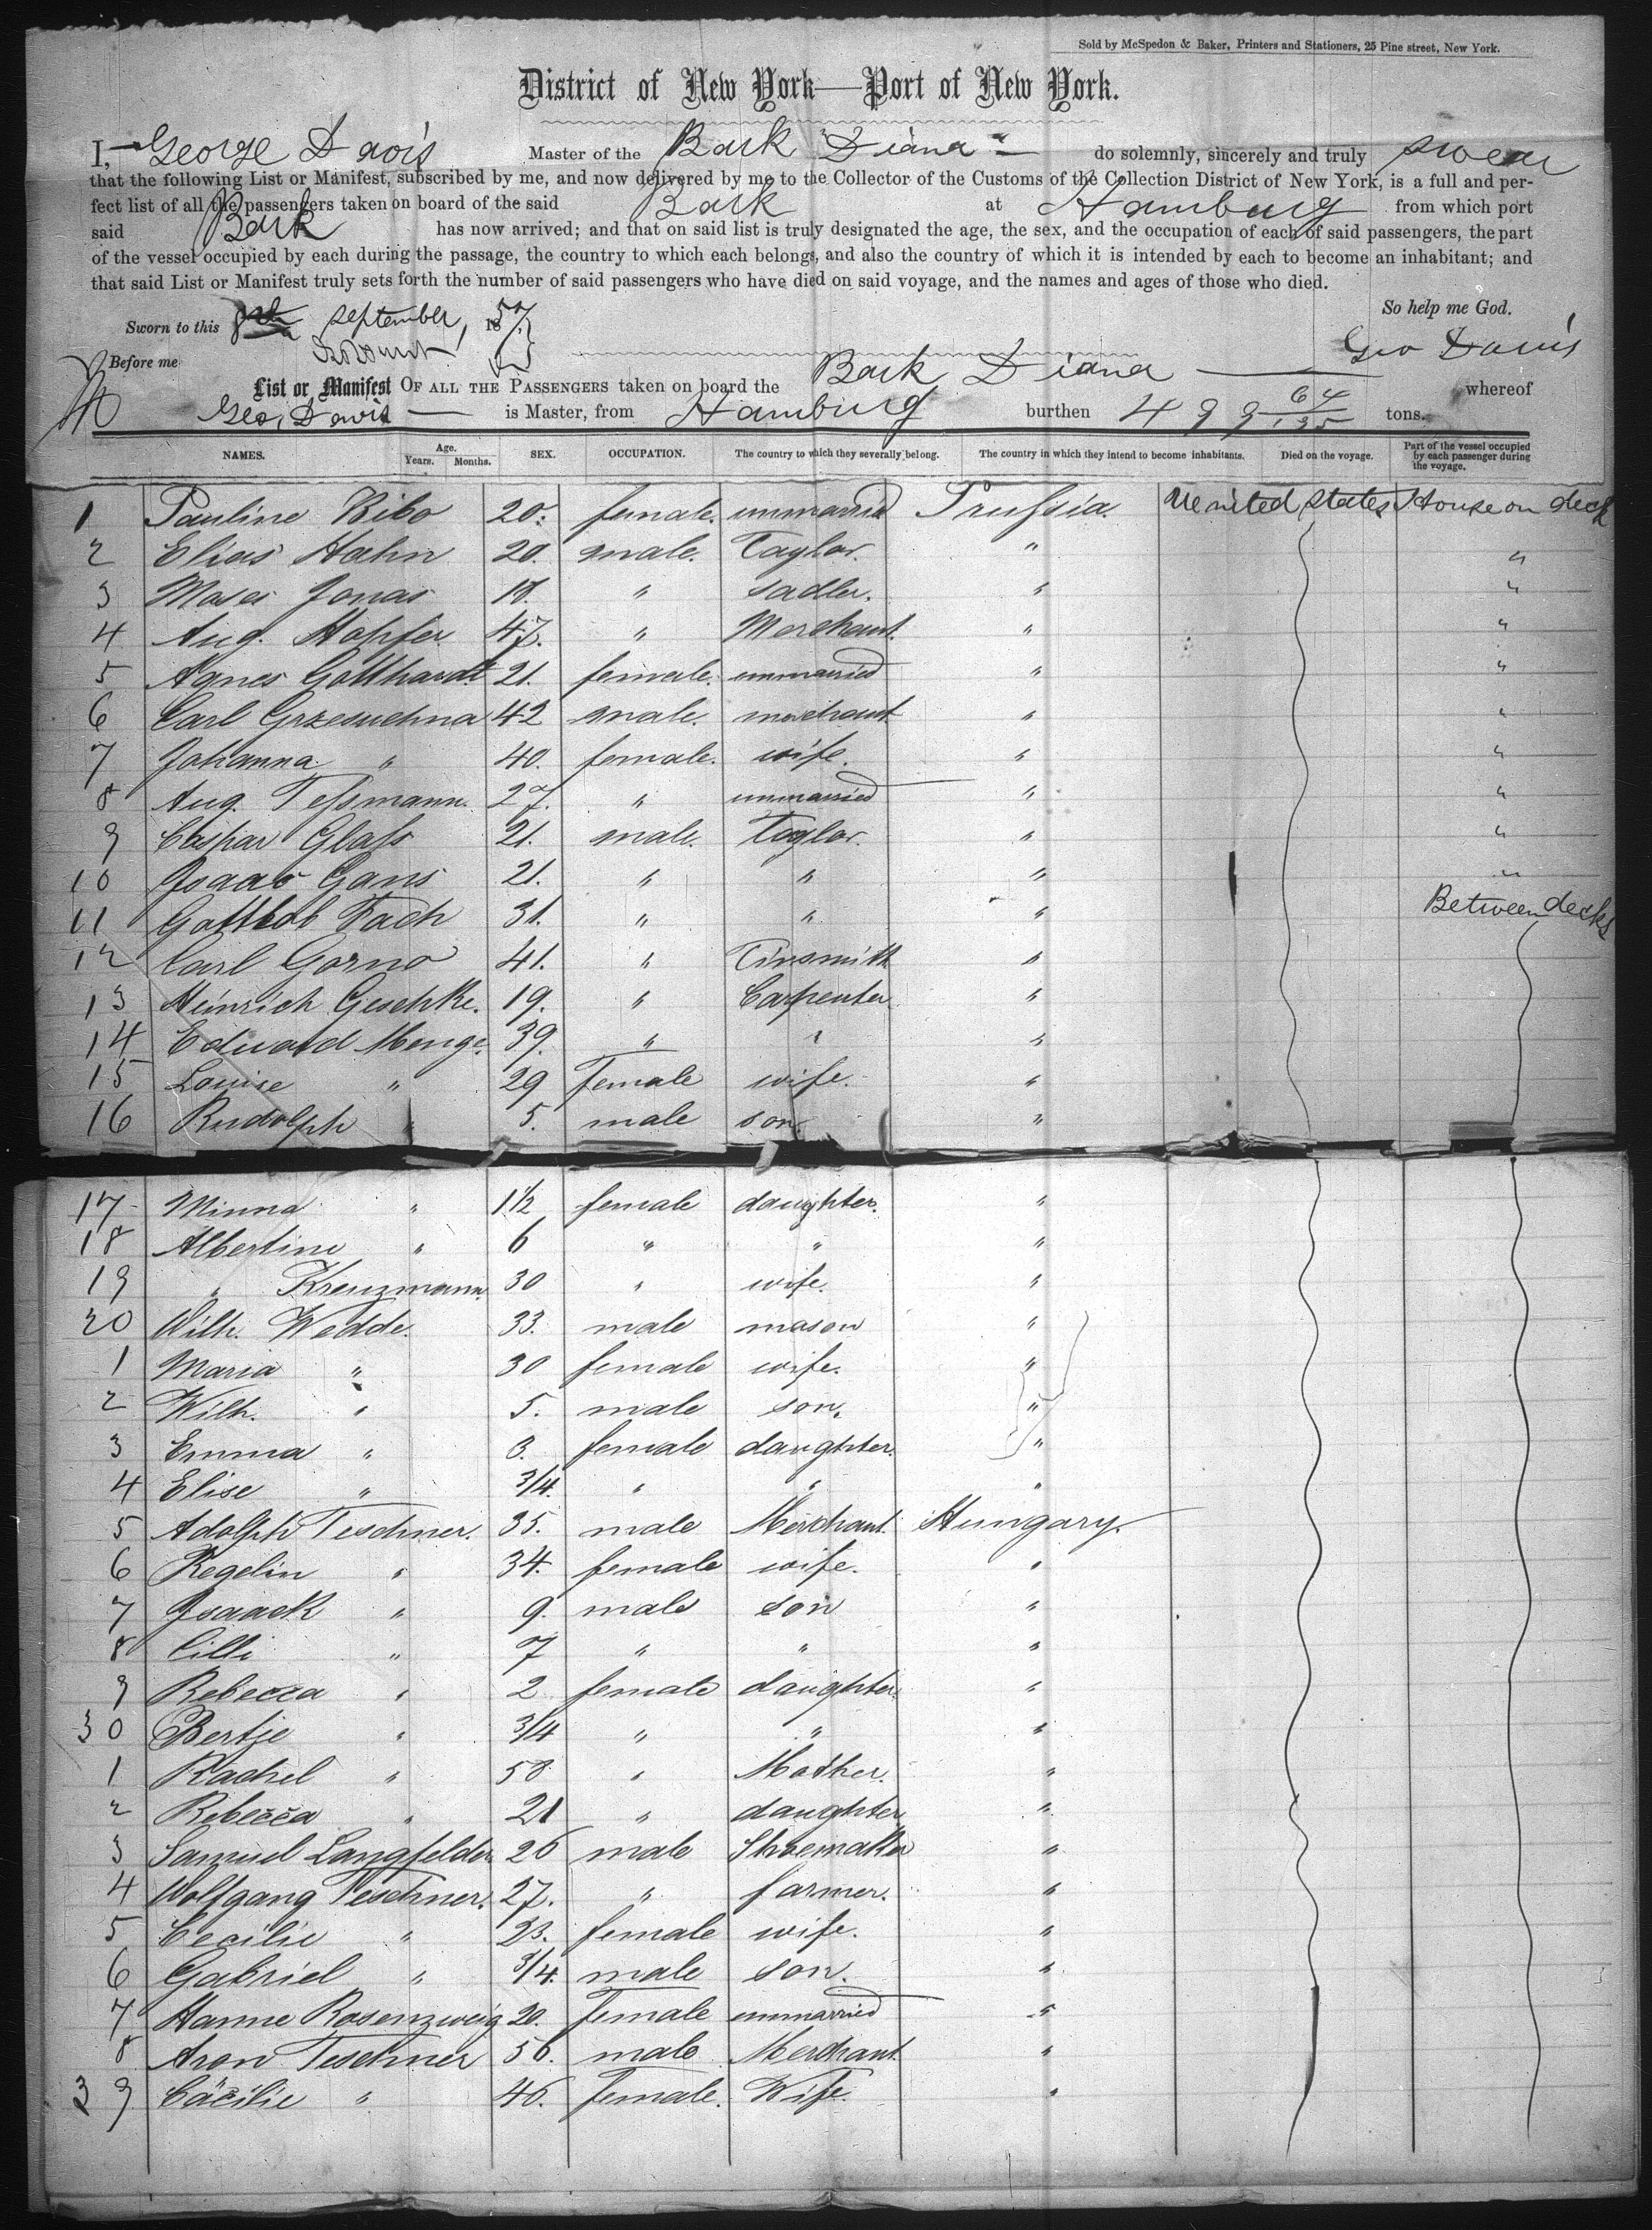 Sold by McSpedon & Baker, Printers and Stationers, 25 Pine street, New York.
District of New York—Port of New York.
I, George Davis Master of the Bark "Diana" do solemnly, sincerely and truly swear
that the following List or Manifest, subscribed by me, and now delivered by me to the Collector of the Customs of the Collection District of New York, is a full and per-
fect list of all the passengers taken on board of the said Bark at Hamburg from which port
said Bark has now arrived; and that on said list is truly designated the age, the sex, and the occupation of each of said passengers, the part
of the vessel occupied by each during the passage, the country to which each belongs, and also the country of which it is intended by each to become an inhabitant; and
that said List or Manifest truly sets forth the number of said passengers who have died on said voyage, and the names and ages of those who died.
So help me God.
Sworn to this september, 1857.
Before me Geo Davis
List or Manifest OF ALL THE PASSENGERS taken on board the Bark Diana whereof
Geo, Davis is Master, from Hamburg burthen 499 64/95 tons.
NAMES. Age. Years. Months. SEX. OCCUPATION. The country to which they severally belong. The country in which they intend to become inhabitants. Died on the voyage. Part of the vessel occupied by each passenger during the voyage.
1 Pauline Bibo 20. female. unmarried Prussia. United states House on deck
2 Elias Hahn 20. male. Taylor. " "
3 Moses Jonas 18. " sadler. " "
4 Aug. Hopfer 47. " Merchant. " "
5 Agnes Gotthardt 21. female. unmarried " "
6 Carl Grzesuchna 42 male. merchant " "
7 Johanna " 40. female. wife. " "
8 Aug. Tessmann. 27. " unmarried " "
9 Caspar Glass 21. male. Taylor. " "
10 Isaac Gans 21. " " " "
11 Gottlob Fach 31. " " " Between decks
12 Carl Gorno 41. " Tinsmith "
13 Heinrich Geschke. 19. " Carpenter "
14 Eduard Menge. 39. " " "
15 Louise " 29 female wife. "
16 Rudolph " 5. male son. "
17 Minna " 1 1/2 female daughter. "
18 Albertine " 6 " " "
19 " Kreuzmann. 30 " wife. "
20 Wilh. Wedde. 33. male mason "
1 Maria " 30 female wife. "
2 Wilh. " 5. male son. "
3 Emma " 3. female daughter. "
4 Elise " 3/4. " " "
5 Adolph Teschner. 35. male Merchant. Hungary.
6 Regelin " 34. female wife. "
7 Isaack " 9. male son "
8 Cilli " 7 " " "
9 Rebecca " 2 female daughter. "
30 Bertje " 3/4 " " "
1 Rachel " 58 " Mother. "
2 Rebecca " 21 " daughter "
3 Samuel Langfelder 26 male Shoemaker "
4 Wolfgang Teschner. 27. " farmer. "
5 Cecilie " 23. female wife. "
6 Gabriel " 3/4. male son. "
7 Hanne Rosenzweig 20. female unmarried "
8 Aron Teschner 56. male Merchant. "
39 Cäcilie " 46. female. Wife. "